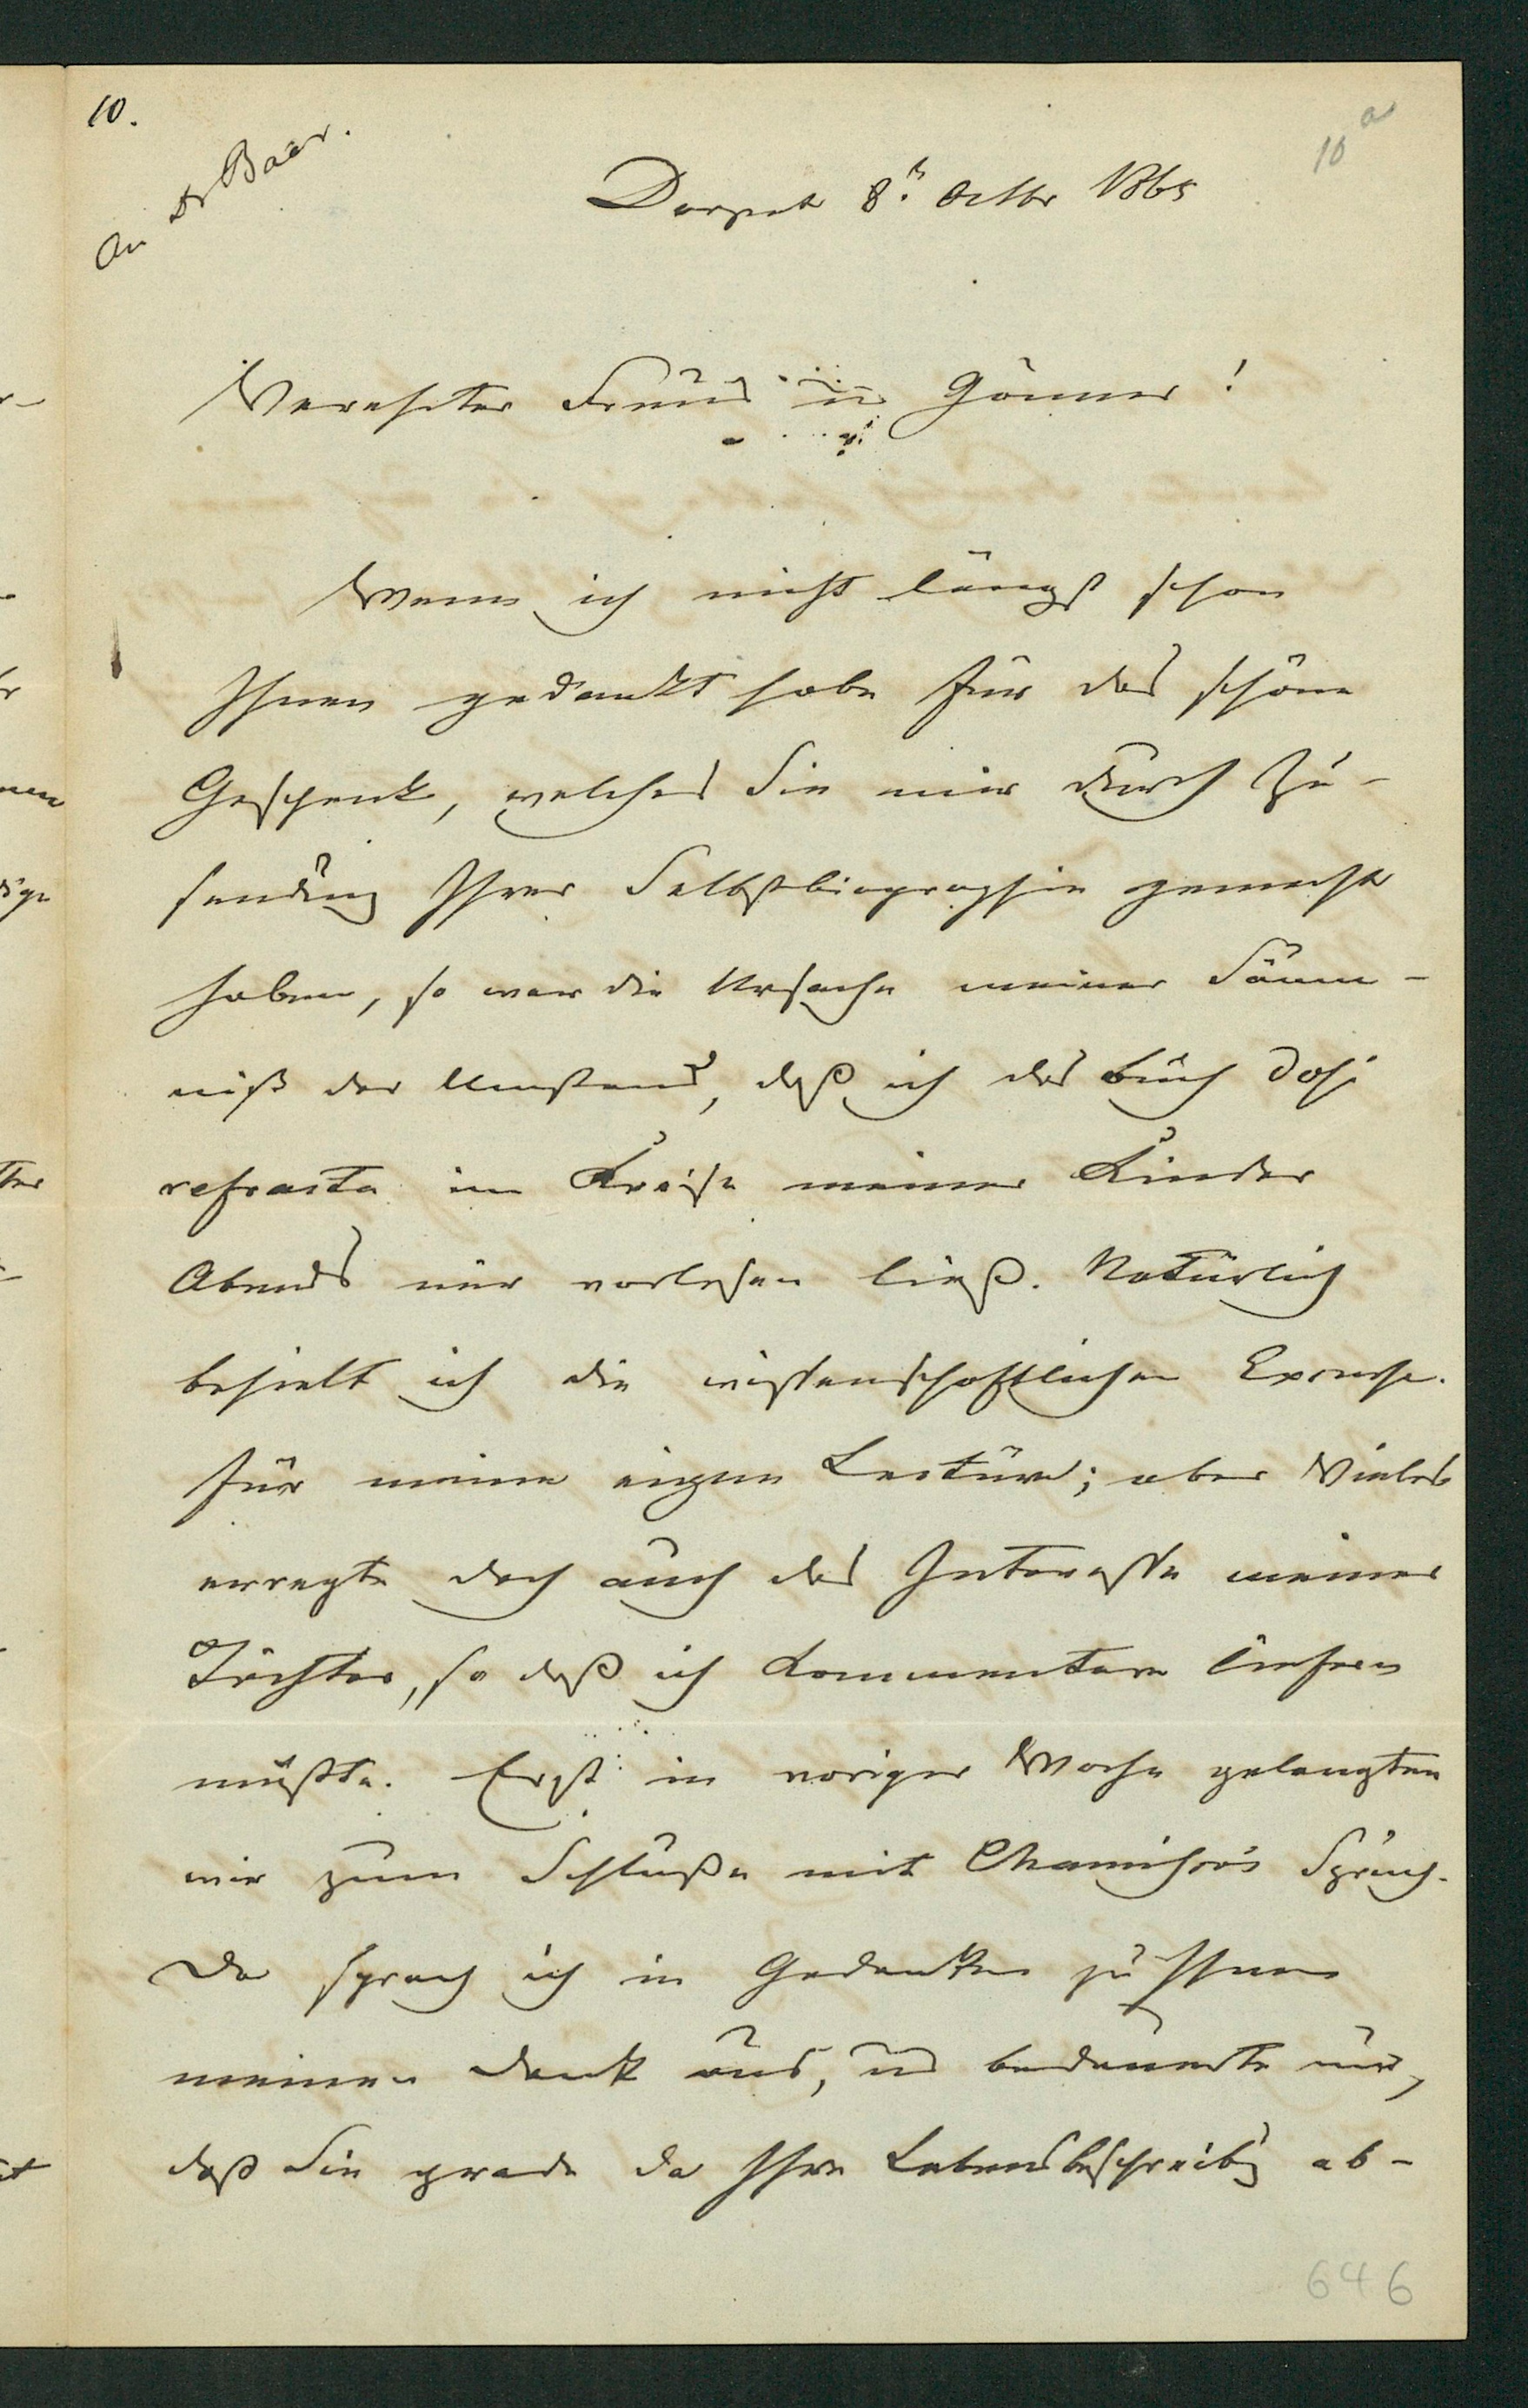 10.
An Dr Baer.
10 a
Dorpat 8.t Octbr 1865
Verehrter Freund und Gönner!
Wenn ich nicht längst schon
Ihnen gedankt habe für das schöne
Geschenk, welches Sie mir durch Zu-
sendung Ihrer Selbstbiographie gemacht
haben, so war die Ursache meiner Säum-
niß der Umstand, daß ich das Buch dosi
refracta im Kreise meiner Kinder
Abends mir vorlesen ließ. Natürlich
behielt ich die wissenschaftlichen Excurse
für meine eigne Lectüre; aber Vieles
erregte doch auch das Interesse meiner
Töchter, so daß ich Kommentare liefern
mußte. Erst in voriger Woche gelangten
wir zum Schluße mit Chamisso's Spruch.
Da sprach ich in Gedanken zu Ihnen
meinen Dank aus, und bedauerte nur,
daß Sie grade da Ihre Lebensbeschreibg ab-
646